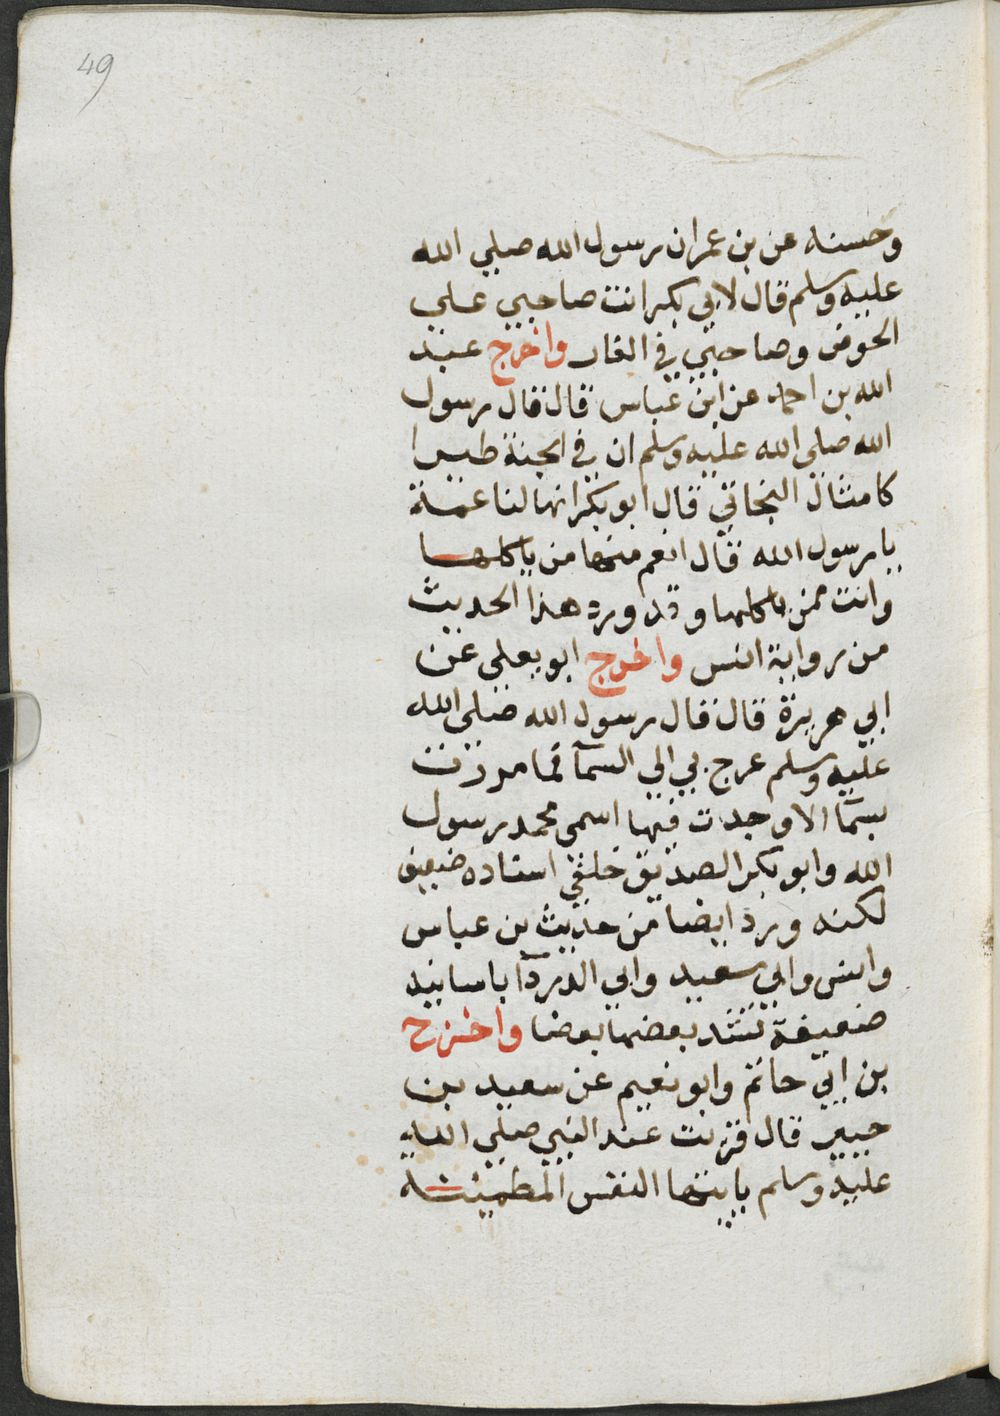 49
وحسنه عن بن عمران رسول الله صلي الله
عليه وسلم قال لابي بكر انت صاحبي علي
الحوض وصاحبي في الغار واخرج عبد
الله بن احمد عن ابن عباس قال قال رسول
الله صلي الله عليه وسلم ان في الجنة طيرا
كامثال البخاتي قال ابو بكر انها لناعمة
يا رسول الله قال انعم منها من ياكلها
وانت ممن ياكلها وقد ورد هذا الحديث
من رواية انس واخرج ابو يعلي عن
ابي هريرة قال قال رسول الله صلي الله
عليه وسلم عرج بي الي السمآ فما مررت
بسمآ الا وجدت فيها اسمي محمد رسول
الله وابو بكر الصديق خلفي اسناده ضعيف
لكنه ورد ايضا من حديث بن عباس
وانس وابي سعيد وابي الدردآ باسانيد
ضعيفة تشد بعضها بعضا واخرج
بن ابي حاتم وابو نعيم عن سعيد بن
جبير قال قريت عند النبي صلي الله
عليه وسلم ياايتها النفس المطمئنة